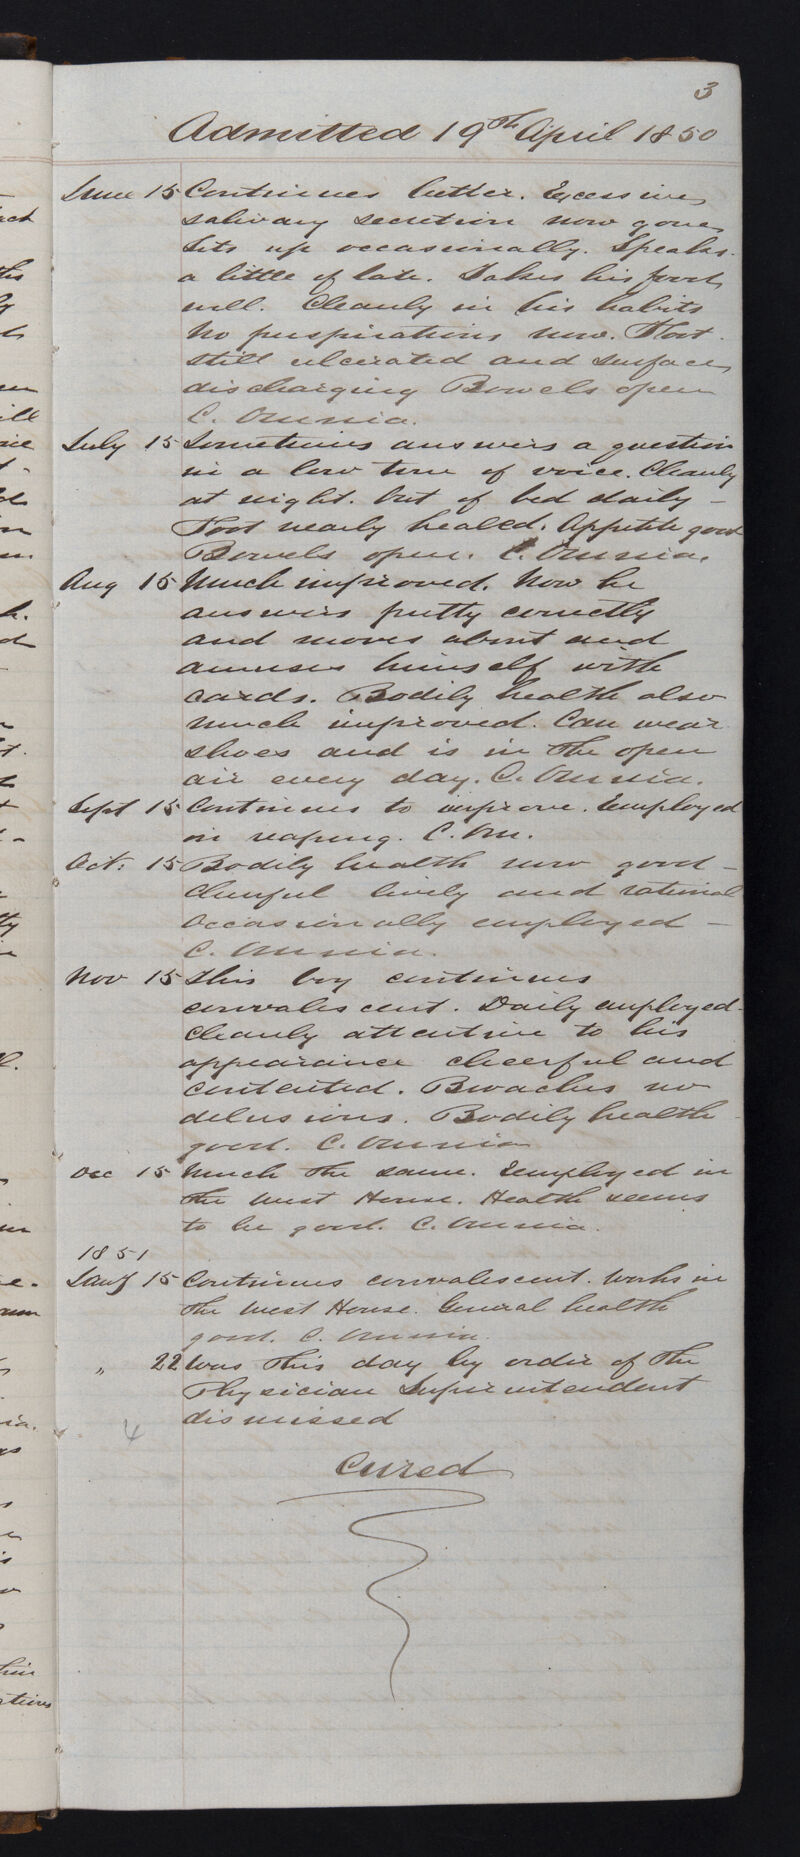 3
Admitted 19th April 1850
June 15 Continues better. Excessive
salivary secretion now gone
Sits up occasionally. Speaks
a little of late. Takes his food
well. Cleanly in his habits
No perspirations now. Foot
still ulcerated and surface
discharging Bowels open
C. Omnia.
July 15 Sometimes answers a question
in a low tone of voice. Cleanly
at night. Out of bed daily –
Foot nearly healed. Appetite good
Bowels open. C. Omnia.
Aug 15 Much improved. Now he
answers pretty correctly
and moves about and
amuses himself with
cards. Bodily health also
much improved. Can wear
shoes and is in the open
air every day. C. Omnia.
Sept 15 Continues to improve. Employed
in reaping. C. Om.
Oct: 15 Bodily health now good –
Cheerful lively and rational
Occasionally employed –
C. Omnia.
Nov 15 This boy continues
convalescent. Daily employed
cleanly attentive to his
appearance cheerful and
contented. Broaches no
delusions. Bodily health
good. C. Omnia
Dec 15 Much the same. Employed in
the West House. Health seems
to be good. C. Omnia.
1851
Jany 15 Continues convalescent. Works in
the West House. General health
good. C. Omnia.
" 22 Was this day by order of the
Physician Superintendent
dismissed
Cured